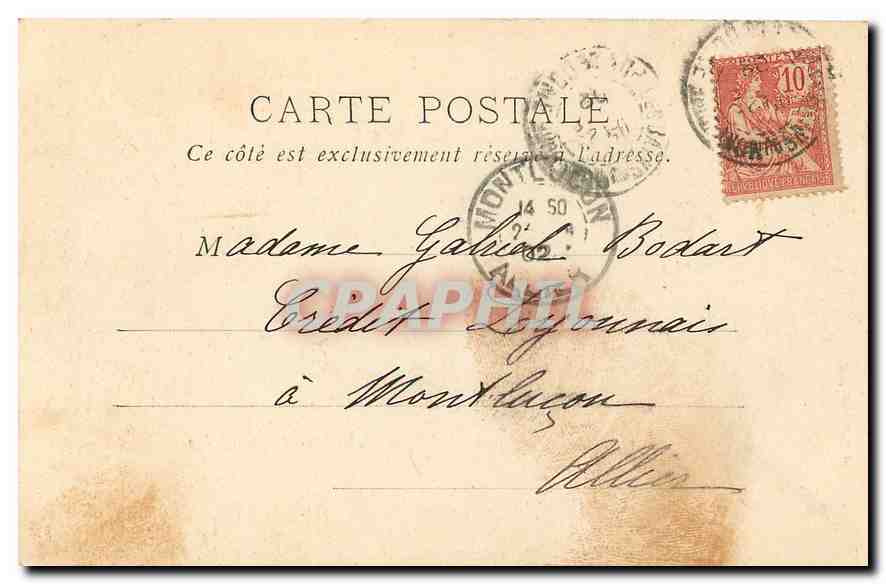 CARTE POSTALE
Ce côté est exclusivement réservé à l'adresse.
10
POSTES
REPUBLIQUE FRANÇAISE
MONTLUÇON
14 50
02
Madame Gabriel Bodart
CPAPHIL
Crédit Lyonnais
à Montluçon
Allier